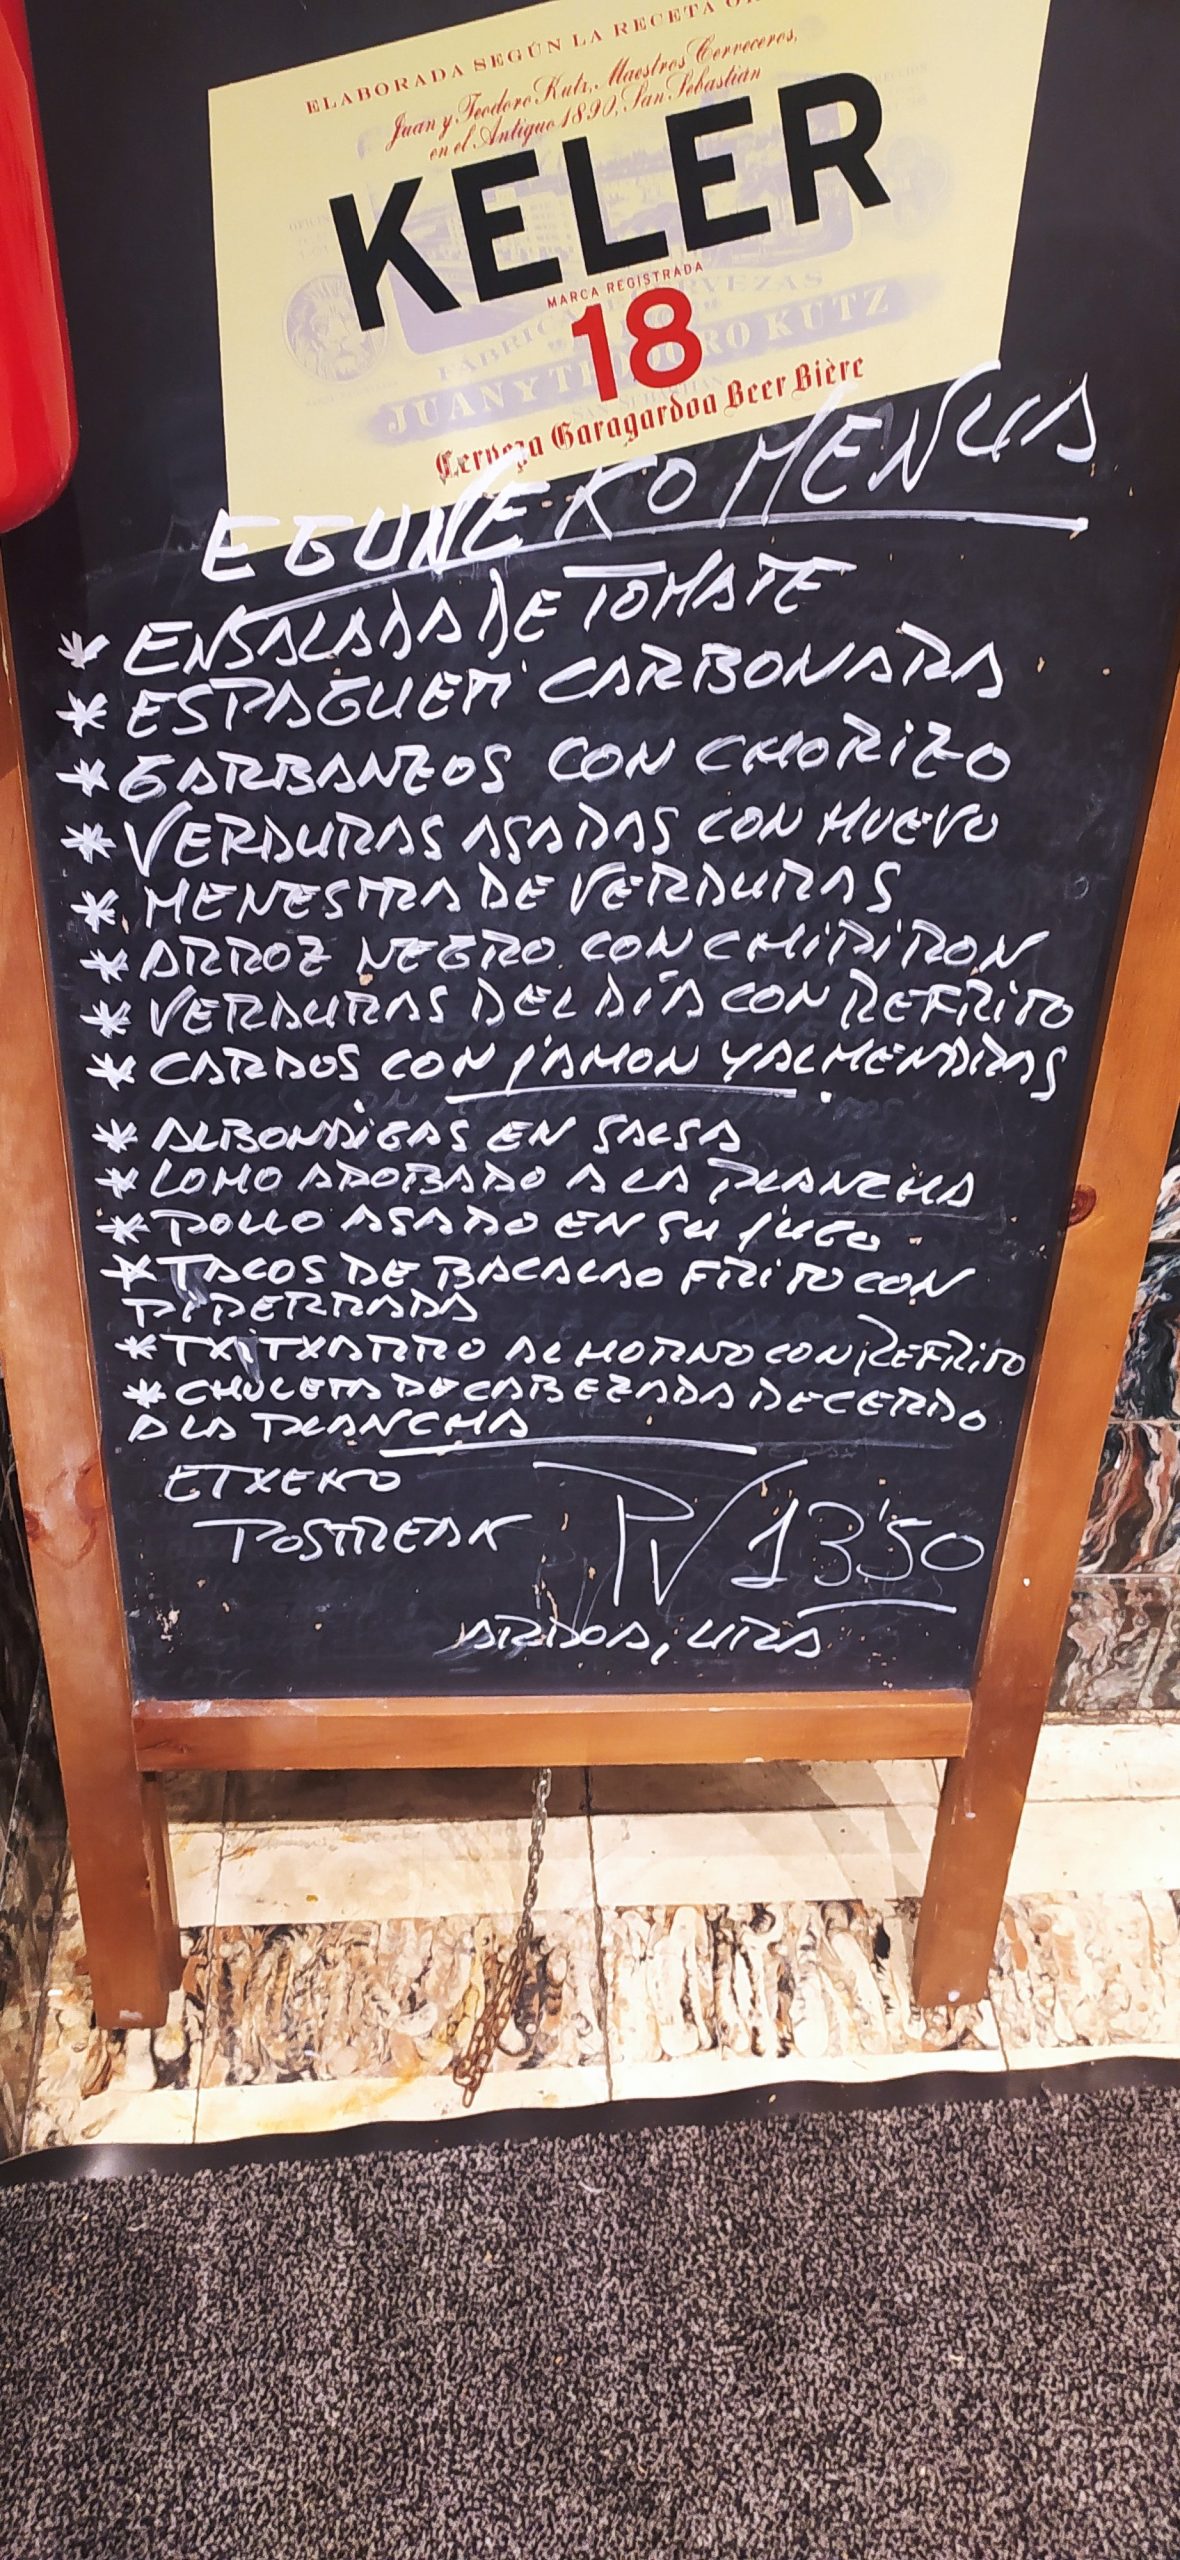 ELABORADA SEGÚN LA RECETA
Juan y Teodoro Kutz, Maestros Cerveceros,
en el Antiguo 1890, San Sebastián
KELER
MARCA REGISTRADA
18
FÁBRICA DE CERVEZAS
JUAN Y TEODORO KUTZ
SAN SEBASTIÁN
Cerveza Garagardoa Beer Bière
EGUNEKO MENUA
* ENSALADA DE TOMATE
* ESPAGUETI CARBONARA
* GARBANZOS CON CHORIZO
* VERDURAS ASADAS CON HUEVO
* MENESTRA DE VERDURAS
* ARROZ NEGRO CON CHIPIRON
* VERDURAS DEL DÍA CON REFRITO
* CARDOS CON JAMON Y ALMENDRAS
* ALBONDIGAS EN SALSA
* LOMO ADOBADO A LA PLANCHA
* POLLO ASADO EN SU JUGO
* TACOS DE BACALAO FRITO CON
PIPERRADA
* TXITXARRO AL HORNO CON REFRITO
* CHULETA DE CABEZADA DE CERDO
A LA PLANCHA
ETXEKO
POSTREAK
PV 13'50
ARDOA, URA